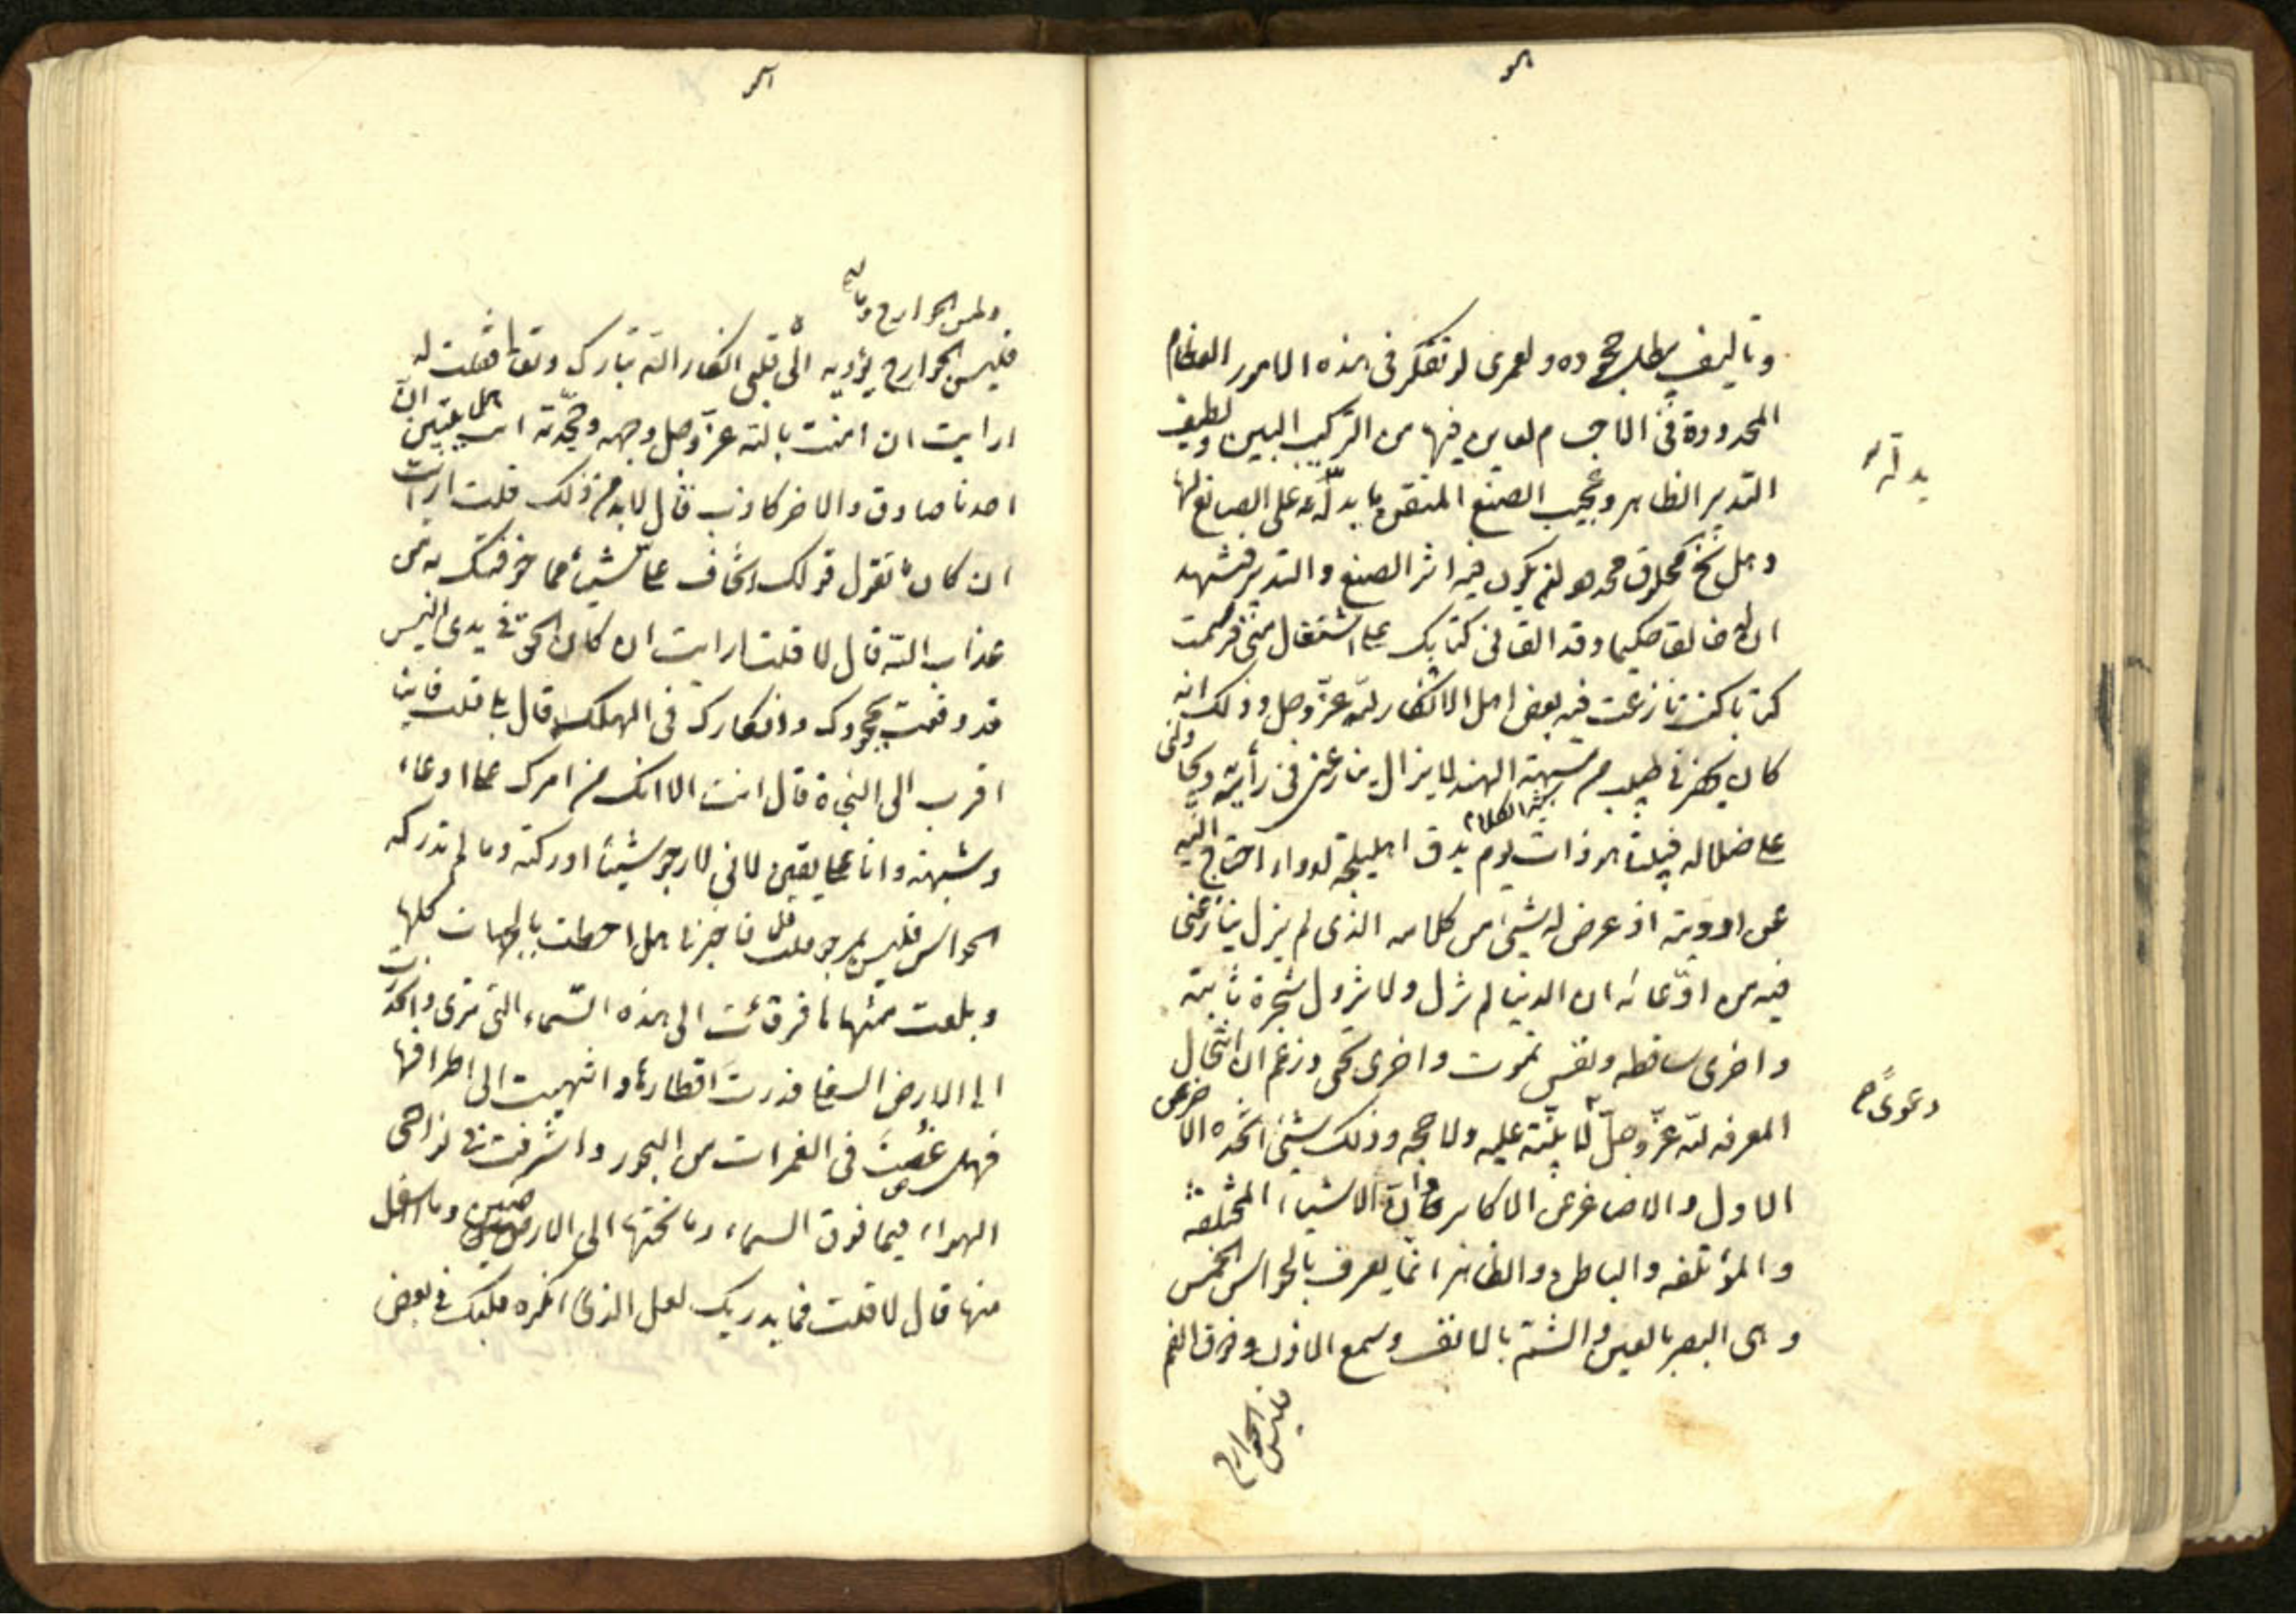 وتاليف يبطل جحوده ولعمرى لو تفكر فى هذه الامور العظام
المحدودة فى الاجسام لعاين فيها من التركيب البين ولطيف
التدبير الظاهر وعجيب الصنع المتقن ما يدله على الصانع لها
يدله
ان له خالقا حكيما وقد القانى كتابك على اشتغال منى فرسمت
كتابا كنت نازعت فيه بعض اهل الانكار لله عزّ وجل وذلك انه
كان يحضرنى طبيب من الهند لا يزال ينازعنى فى رأيه ويحاولنى
على ضلاله فبينا هو ذات يوم يدق اهليلجة لدواء احتاج اليه
من ادويته اذ عرض له شيئ من كلامه الذى لم يزل ينازعنى
فيه من ادّعائه ان الدنيا لم تزل ولا تزول شجرة نابتة
واخرى ساقطه ونفس تموت واخرى تحى وزعم ان انتحال
المعرفه لله عزّ وجلّ لا بيّنة عليه ولا حجه وذلك شيئ اخذه الاخر عن
دعوى
الاول والاصاغر عن الاكابر وان الاشياء المختلفة
والمؤتلفه والباطن والظاهر انما يعرف بالحواس الخمس
وهى البصر بالعين والشم بالانف وسمع الاذن وذوق الفم
ولمس الجوارح
فليس الجوارح يؤديه الى قلبى انكار الله تبارك وتعالى فقلت له
ارايت ان امنت بالله عزّ وجل
احدنا صادق والاخر كاذب قال لابد من ذلك قلت ارايت
ان كان تقول قولك اتخاف على شيئا مما خوفتك به من
عذاب الله قال لا قلت ارايت ان كان الحق فى يدى اليس
قد وقعت بجحودك وانكارك فى الهلكه قال بلى قلت فاينا
اقرب الى النجاة قال انت الا انك من امرك على ادعاء
وشبهة وانا على يقين لانى لارجو شيئا ادركته وما لم تدركه
الحواس فليس يرجو قلت فاخبرنا هل احطت بالجهات كلها
وبلغت منتهاها فرقئت الى هذه السّماء التى ترى وانحدرت
الى الارض السفلى فدرت اقطارها وانتهيت الى اطرافها
فهل غصت فى الغمرات من البحور واشرفت فى نواحى
الهواء فيما فوق السماء وما تحتها الى الارضين وما اسفل
منها قال لا قلت فما يدريك لعل الذى انكره قلبك فى بعض